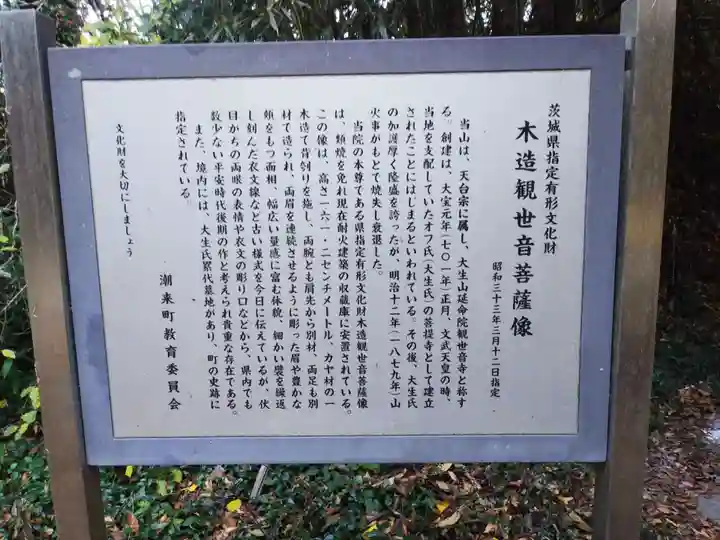 茨城県指定有形文化財
木造観世音菩薩像
昭和三十三年三月十二日指定
当山は、天台宗に属し、大生山延命院観世音寺と称す
る。創建は、大宝元年(七〇一年)正月、文武天皇の時、
当地を支配していたオフ氏(大生氏)の菩提寺として建立
されたことにはじまるといわれている。その後、大生氏
の加護厚く隆盛を誇ったが、明治十二年(一八七九年)山
火事がもとで焼失し衰退した。
当院の本尊である県指定有形文化財木造観世音菩薩像
は、類焼を免れ現在耐火建築の収蔵庫に安置されている。
この像は、高さ一六一・二センチメートル、カヤ材の一
木造で背刳りを施し、両腕とも肩先から別材、両足も別
材で造られ、両眉を連続させるように彫った眉や豊かな
頬をもつ面相、幅広い量感に富む体貌、細かい襞を繰返
し刻んだ衣文線など古い様式を今日に伝えているが、伏
目がちの両眼の表情や衣文の彫り口などから、県内でも
数少ない平安時代後期の作と考えられ貴重な存在である。
また、境内には、大生氏累代墓地があり、町の史跡に
指定されている。
潮来町教育委員会
文化財を大切にしましょう